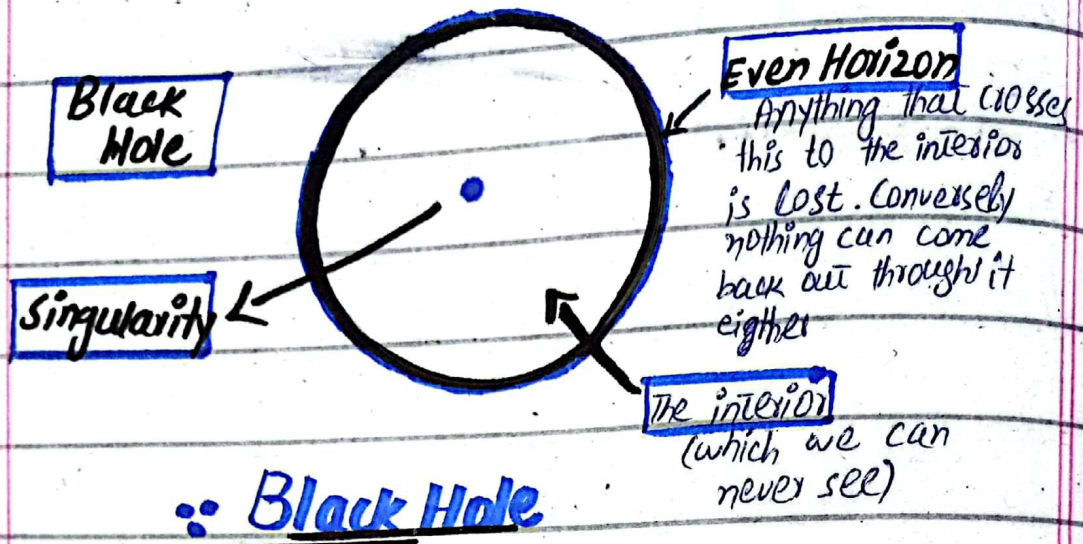 Black
Hole
Singularity
Even Horizon
Anything that crosses
this to the interior
is lost. Conversely
nothing can come
back out throughs it
eigther
The interior
(which we can
never see)
Black Hole